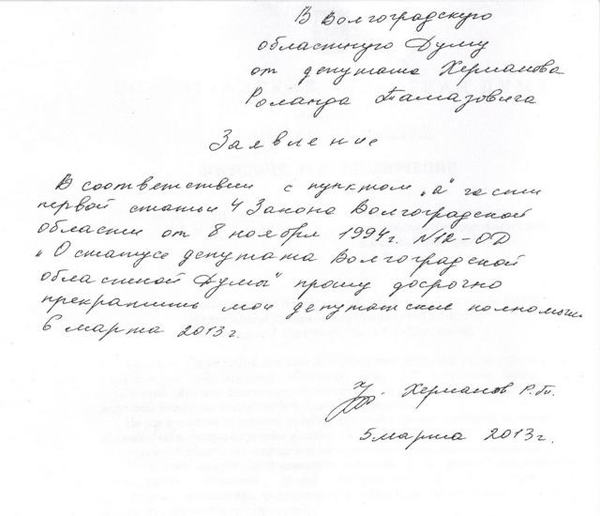 В Волгоградскую
областную Думу
от депутата Херманова
Роланда Тамазовича
Заявление
В соответствии с пунктом „а" части
первой статьи 4 Закона Волгоградской
области от 8 ноября 1994г. №12-ОД
„О статусе депутата Волгоградской
областной Думы" прошу досрочно
прекратить мои депутатские полномочия
6 марта 2013г.
Херманов Р.Т.
5 марта 2013г.